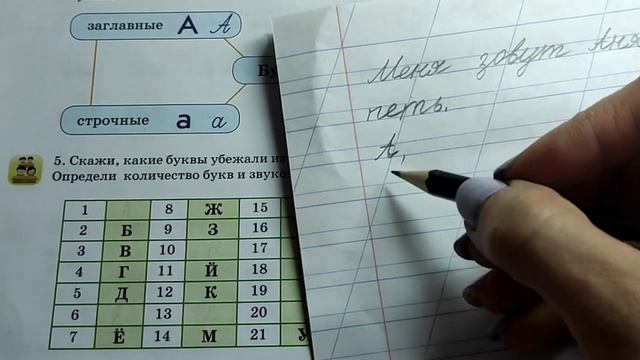 заглавные А А
Бу
строчные а а
5. Скажи, какие буквы убежали из
Определи количество букв и звуко
1 8 Ж 15
2 Б 9 З 16
3 В 10 17
4 Г 11 Й 18
5 Д 12 К 19
6 13 20
7 Ё 14 М 21 У
Меня зовут Аня
петь.
А,